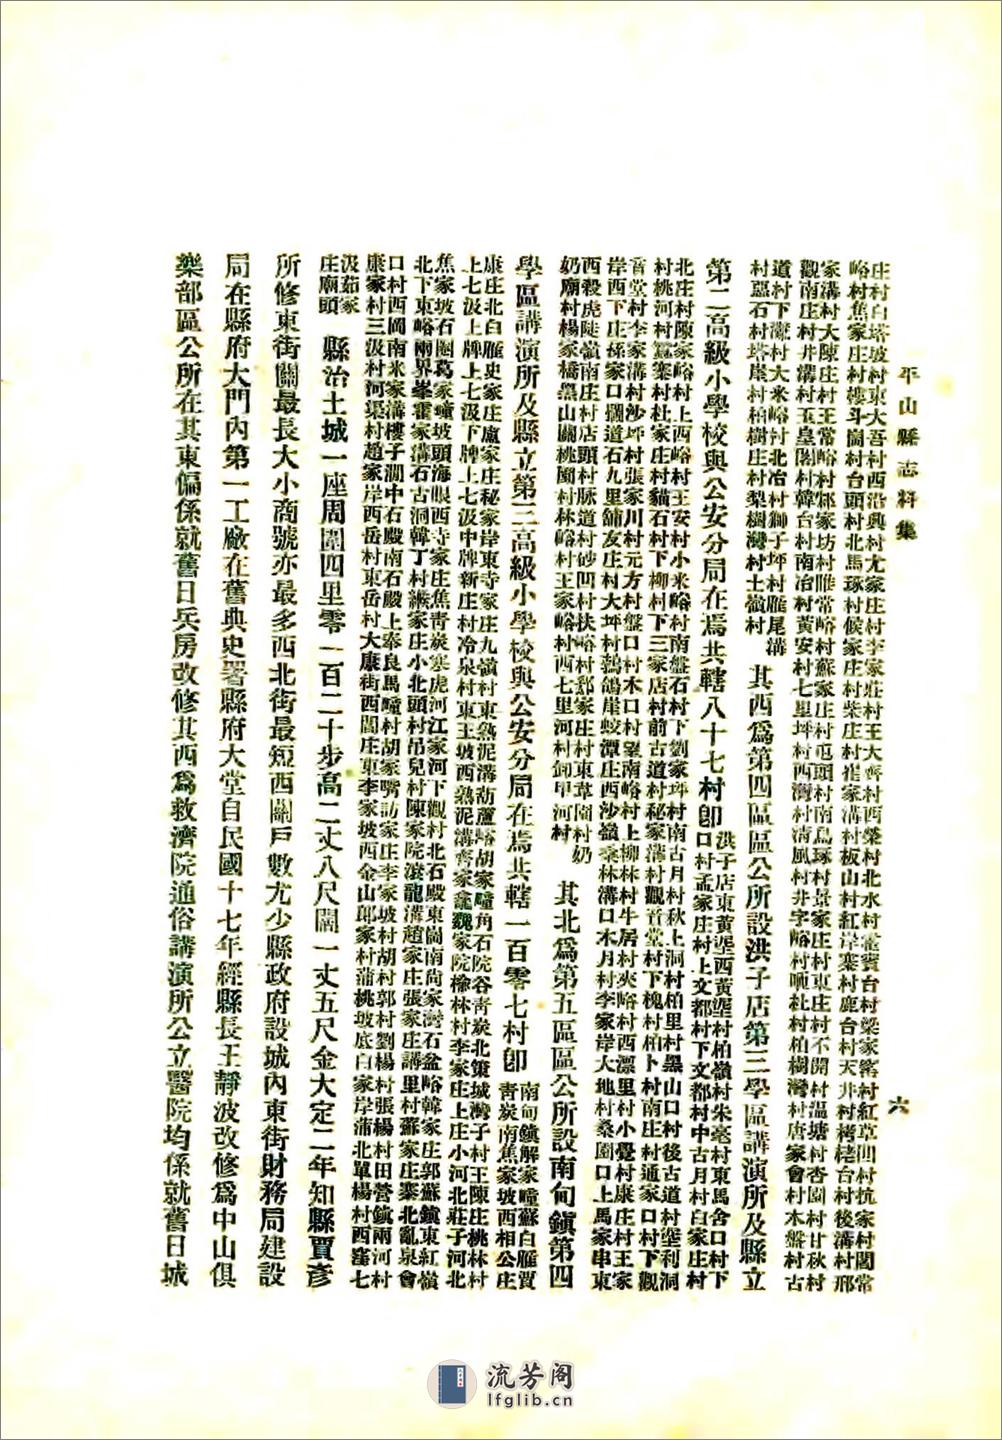 平山縣志料集
六
庄村白塔坡村東大吾村西沿興村尤家庄村李家莊村王大齊村西榮村北水村藳賓台村梁家窰村紅草凹村坑家村閣常
峪村焦家庄村樓斗崗村台頭村北馬琢村候家庄村柴庄村崔家溝村板山村紅岸寨村鹿台村天井村栲栳台村後溝村邢
家溝村大陳庄村王常峪村郄家坊村睢常峪村蘇家庄村屯頭村南馬琢村景家庄村東庄村不開村溫塘村杏園村廿秋村
觀南庄村井溝村玉皇閣村韓台村南冶村黃安村七里坪村西灣村清風村井字峪村唖杜村柏樹灣村唐家會村木盤村古
道村下灣村大米峪村北冶村獅子坪村雁尾溝
村惡石村塔崖村柏樹庄村梨樹灣村土嶺村
其西爲第四區區公所設洪子店第三學區講演所及縣立
第二高級小學校與公安分局在焉共轄八十七村卽
洪子店東黃埿西黃埿村柏嶺村朱毫村東馬舍口村下
口村孟家庄村上文都村下文都村中古月村白家庄村
北庄村陳家峪村上西峪村王安村小米峪村南盤石村下劉家坪村南古月村秋上洞村柏里村黑山口村後古道村埿利洞
村桃河村蠶寨村杜家庄村貓石村下柳村下三家店村前古道村秘家溝村觀音堂村下槐村柏卜村南庄村通家口村下觀
音堂村李家溝村沙坪村張家川村元方村盤口村木口村罣南峪村上柳林村牛居村夾峪村西漂里村小覺村康庄村王家
岸西下庄孫家口擱道石九里舖友庄村大坪村鵓鴿崖蛟潭庄西沙嶺桑林溝口木月村李家岸大地村桑園口上馬家串東
西殺虎陡嶺南庄村店頭村脉道村砂凹村扶峪村郄家庄村東韋園村奶
奶廟村楊家橋黑山關桃園村林峪村王家峪村西七里河村卸甲河村
其北爲第五區區公所設南甸鎮第四
學區講演所及縣立第三高級小學校與公安分局在焉共轄一百零七村卽
南甸鎮解家疃蘇白雁賈
靑炭南焦家坡西相公庄
康庄北白雁史家庄盧家庄秘家岸東寺家庄九嶺村東熟泥溝葫蘆峪胡家疃角石院谷靑炭北策城灣子村王陳庄桃林村
上七汲上牌上七汲下牌上七汲中牌新庄村冷泉村東王坡西熟泥溝齊家龕魏家院楡林村李家庄上庄小河北莊子河北
焦家坡石圈葛家疃坡頭海眼西寺家庄焦靑炭寨虎河江家河下觀村北石殿東崗南尚家灣石盆峪韓家庄郭蘇鎮東紅嶺
北下東峪兩界峯霍家溝石古洞韓丁村緱家庄小北頭村吊兒村陳家院滾龍溝趙家庄張家庄講里村蘇家庄寨北亂泉會
口村西岡南米家溝樓子澗中石殿南石殿上奉良馬疃村胡家嘴訪家庄李家坡村胡村郭村劉楊村張楊村田營鎮兩河村
康家村三汲村河渠村趙家岸西岳村東岳村大康街西閆庄東李家坡西金山郎家村蒲桃坡底白家岸蒲北單楊村西窰七
汲茹家
庄廟頭
縣治土城一座周圍四里零一百二十步高二丈八尺闊一丈五尺金大定二年知縣賈彥
所修東街關最長大小商號亦最多西北街最短西關戶數尤少縣政府設城內東街財務局建設
局在縣府大門內第一工廠在舊典史署縣府大堂自民國十七年經縣長王靜波改修爲中山俱
樂部區公所在其東偏係就舊日兵房改修其西爲救濟院通俗講演所公立醫院均係就舊日城
流芳阁
lfglib.cn